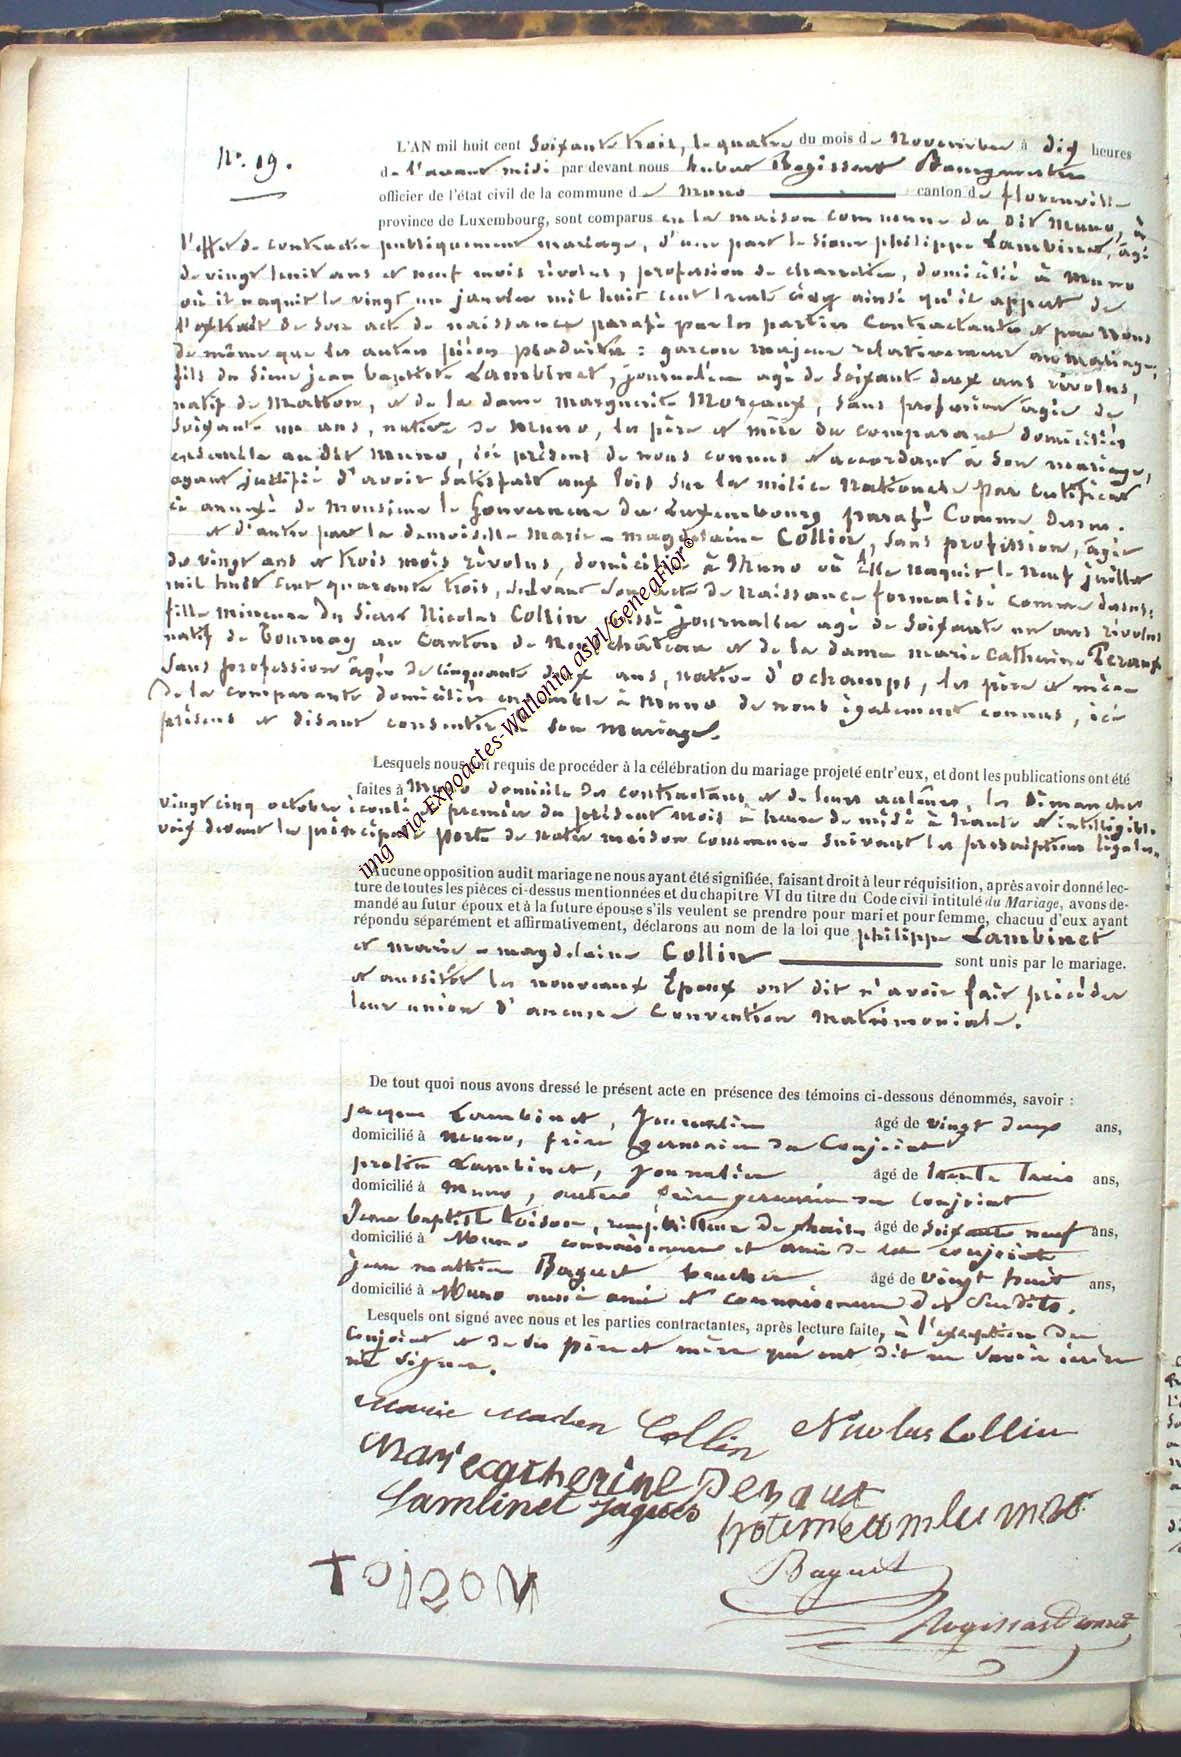 N° 19.
L'AN mil huit cent Soixante trois, le quatre du mois de Novembre à dix heures
de l'avant midi par devant nous hubert Rogissart Bourgmestre
officier de l'état civil de la commune de Muno canton de florenville
province de Luxembourg, sont comparus en la maison commune du dit Muno, à
l'effet de contracter publiquement mariage, d'une part le Sieur philippe Lambinet, âgé
de vingt huit ans et neuf mois révolus, profession de charretier, domicilié à Muno
où il naquit le vingt un janvier mil huit cent trente cinq ainsi qu'il appert de
l'extrait de son acte de naissance parafé par les parties contractantes et par nous
de même que les autres pièces produites : garçon majeur relativement au mariage,
fils du Sieur jean baptiste Lambinet, journalier agé de Soixante deux ans révolus,
natif de Matton, et de la dame Marguerite Morceaux, sans profession âgée de
Soixante un ans, native de Muno, les père et mère du comparant domiciliés
ensemble audit Muno, ici présens de nous connus et accordant à son mariage,
ayant justifié d'avoir satisfait aux lois sur la milice Nationale par certificat
ci annexé de Monsieur le Gouverneur du Luxembourg parafé Comme dessus.
et d'autre part la demoiselle Marie-magdelaine Collin, sans profession, âgée
de vingt ans et trois mois révolus, domiciliée à Muno où Elle naquit le neuf juillet
mil huit cent quarante trois, suivant son acte de Naissance formalisé comme dessus :
fille mineure du Sieur Nicolas Collin journalier agé de Soixante un ans révolus
natif de Tournay au Canton de Neufchâteau et de la dame marie Catherine
Sans profession âgée de Cinquante deux ans, native d'ochamps, les père et mère
de la comparante domiciliés ensemble à Muno de nous également connus, ici
présens et disant consentir à son Mariage.
Lesquels nous ont requis de procéder à la célébration du mariage projeté entr'eux, et dont les publications ont été
faites à Muno domicile des contractans et de leurs auteurs, les Dimanches
vingt cinq octobre écoulé et premier du présent mois à heure de midi à haute et intelligible
voix devant la principale porte de notre maison commune suivant les prescriptions légales.
Aucune opposition audit mariage ne nous ayant été signifiée, faisant droit à leur réquisition, après avoir donné lec-
ture de toutes les pièces ci-dessus mentionnées et du chapitre VI du titre du Code civil intitulé du Mariage, avons de-
mandé au futur époux et à la future épouse s'ils veulent se prendre pour mari et pour femme, chacuu d'eux ayant
répondu séparément et affirmativement, déclarons au nom de la loi que philippe Lambinet
et marie-magdelaine Collin sont unis par le mariage.
et aussitôt les nouveaux Epoux ont dit n'avoir fait précéder
leur union d'aucune Convention Matrimoniale.
De tout quoi nous avons dressé le présent acte en présence des témoins ci-dessous dénommés, savoir :
jacques Lambinet, Journalier âgé de vingt deux ans,
domicilié à Muno, frère germain du Conjoint
protin Lambinet, Journalier âgé de trente trois ans,
domicilié à Muno, autre frère germain du Conjoint
Jean baptiste toison, rempailleur de chaises âgé de Soixante neuf ans,
domicilié à Muno connaissance et ami de la conjointe
jean mathieu Baguet boucher âgé de vingt huit ans,
domicilié à Muno aussi ami et connaissance des susdits.
Lesquels ont signé avec nous et les parties contractantes, après lecture faite, à l'exception du
Conjoint et de ses père et mère qui ont dit ne savoir écrire
ni signer.
Marie Madlen Collin Nicolas Collin
Mariecatherine
Lambinet Jaques
Toison
Baguet
Rogissart
img via Expoactes-Wallonia asbl/GeneaFlor©